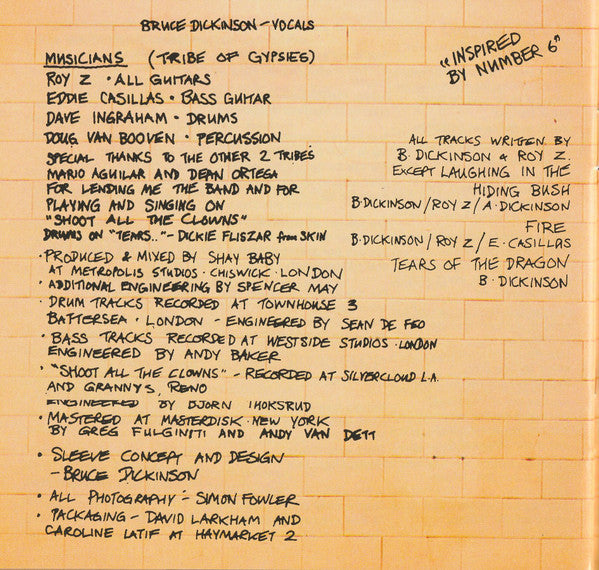 BRUCE DICKINSON - VOCALS
MUSICIANS (TRIBE OF GYPSIES)
ROY Z • ALL GUITARS
EDDIE CASILLAS • BASS GUITAR
DAVE INGRAHAM • DRUMS
DOUG VAN BOOVEN • PERCUSSION
SPECIAL THANKS TO THE OTHER 2 TRIBES
MARIO AGUILAR AND DEAN ORTEGA
FOR LENDING ME THE BAND AND FOR
PLAYING AND SINGING ON
"SHOOT ALL THE CLOWNS"
DRUMS ON "TEARS.." - DICKIE FLISZAR from SKIN
• PRODUCED & MIXED BY SHAY BABY
AT METROPOLIS STUDIOS • CHISWICK • LONDON
• ADDITIONAL ENGINEERING BY SPENCER MAY
• DRUM TRACKS RECORDED AT TOWNHOUSE 3
BATTERSEA • LONDON - ENGINEERED BY SEAN DE FEO
• BASS TRACKS RECORDED AT WESTSIDE STUDIOS • LONDON
ENGINEERED BY ANDY BAKER
• "SHOOT ALL THE CLOWNS" - RECORDED AT SILVERCLOUD L.A.
AND GRANNYS, RENO
ENGINEERED BY BJORN THORSRUD
• MASTERED AT MASTERDISK • NEW YORK
BY GREG FULGINITI AND ANDY VAN DETT
• SLEEVE CONCEPT AND DESIGN
- BRUCE DICKINSON
• ALL PHOTOGRAPHY - SIMON FOWLER
• PACKAGING - DAVID LARKHAM AND
CAROLINE LATIF AT HAYMARKET 2
"INSPIRED
BY NUMBER 6"
ALL TRACKS WRITTEN BY
B. DICKINSON & ROY Z.
EXCEPT LAUGHING IN THE
HIDING BUSH
B. DICKINSON / ROY Z / A. DICKINSON
FIRE
B. DICKINSON / ROY Z / E. CASILLAS
TEARS OF THE DRAGON
B. DICKINSON